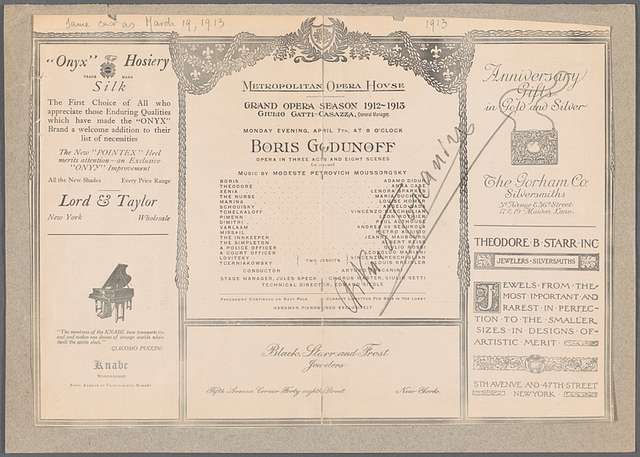 Same cast as March 19, 1913
1913
"Onyx" Hosiery
TRADE MARK
Silk
The First Choice of All who
appreciate those Enduring Qualities
which have made the "ONYX"
Brand a welcome addition to their
list of necessities
The New "POINTEX" Heel
merits attention—an Exclusive
"ONYX" Improvement
All the New Shades Every Price Range
Lord & Taylor
New York Wholesale
GIACOMO PUCCINI
Knabe
METROPOLITAN OPERA HOVSE
GRAND OPERA SEASON 1912-1913
GIULIO GATTI-CASAZZA, General Manager.
MONDAY EVENING, APRIL 7TH, AT 8 O'CLOCK
BORIS GODUNOFF
OPERA IN THREE ACTS AND EIGHT SCENES
MUSIC BY MODESTE PETROVICH MOUSSORGSKY
BORIS ADAMO DIDUR
THEODORE ANNA CASE
XENIA LENORA SPARKES
THE NURSE MARIA DUCHENE
MARINA LOUISE HOMER
SCHOUISKY ANGELO BADA
TCHELKALOFF VINCENZO RESCHIGLIAN
PIMENN LEON ROTHIER
DIMITRI PAUL ALTHOUSE
VARLAAM ANDREA DE SEGUROLA
MISSAIL PIETRO AUDISIO
THE INNKEEPER JEANNE MAUBOURG
THE SIMPLETON ALBERT REISS
A POLICE OFFICER GIULIO ROSSI
A COURT OFFICER LEOPOLDO MARIANI
LOVITZKY TWO JESUITS VINCENZO RESCHIGLIAN
TCERNIAKOWSKY LOUIS KREIDLER
CONDUCTOR ARTURO TOSCANINI
STAGE MANAGER, JULES SPECK CHORUS MASTER, GIULIO SETTI
TECHNICAL DIRECTOR, EDWARD SIEDLE
PROGRAMME CONTINUED ON NEXT PAGE
HARDMAN PIANOS USED EXCLUSIVELY
Black, Starr and Frost
Jewelers
Fifth Avenue Corner Forty eighth Street New York
Anniversary
Gifts
in Gold and Silver
The Gorham Co.
Silversmiths
5th Avenue & 36th Street
17 & 19 Maiden Lane
THEODORE B. STARR INC
JEWELERS-SILVERSMITHS
JEWELS FROM THE
MOST IMPORTANT AND
RAREST IN PERFEC-
TION TO THE SMALLER
SIZES IN DESIGNS OF
ARTISTIC MERIT
5TH AVENUE AND 47TH STREET
NEW YORK